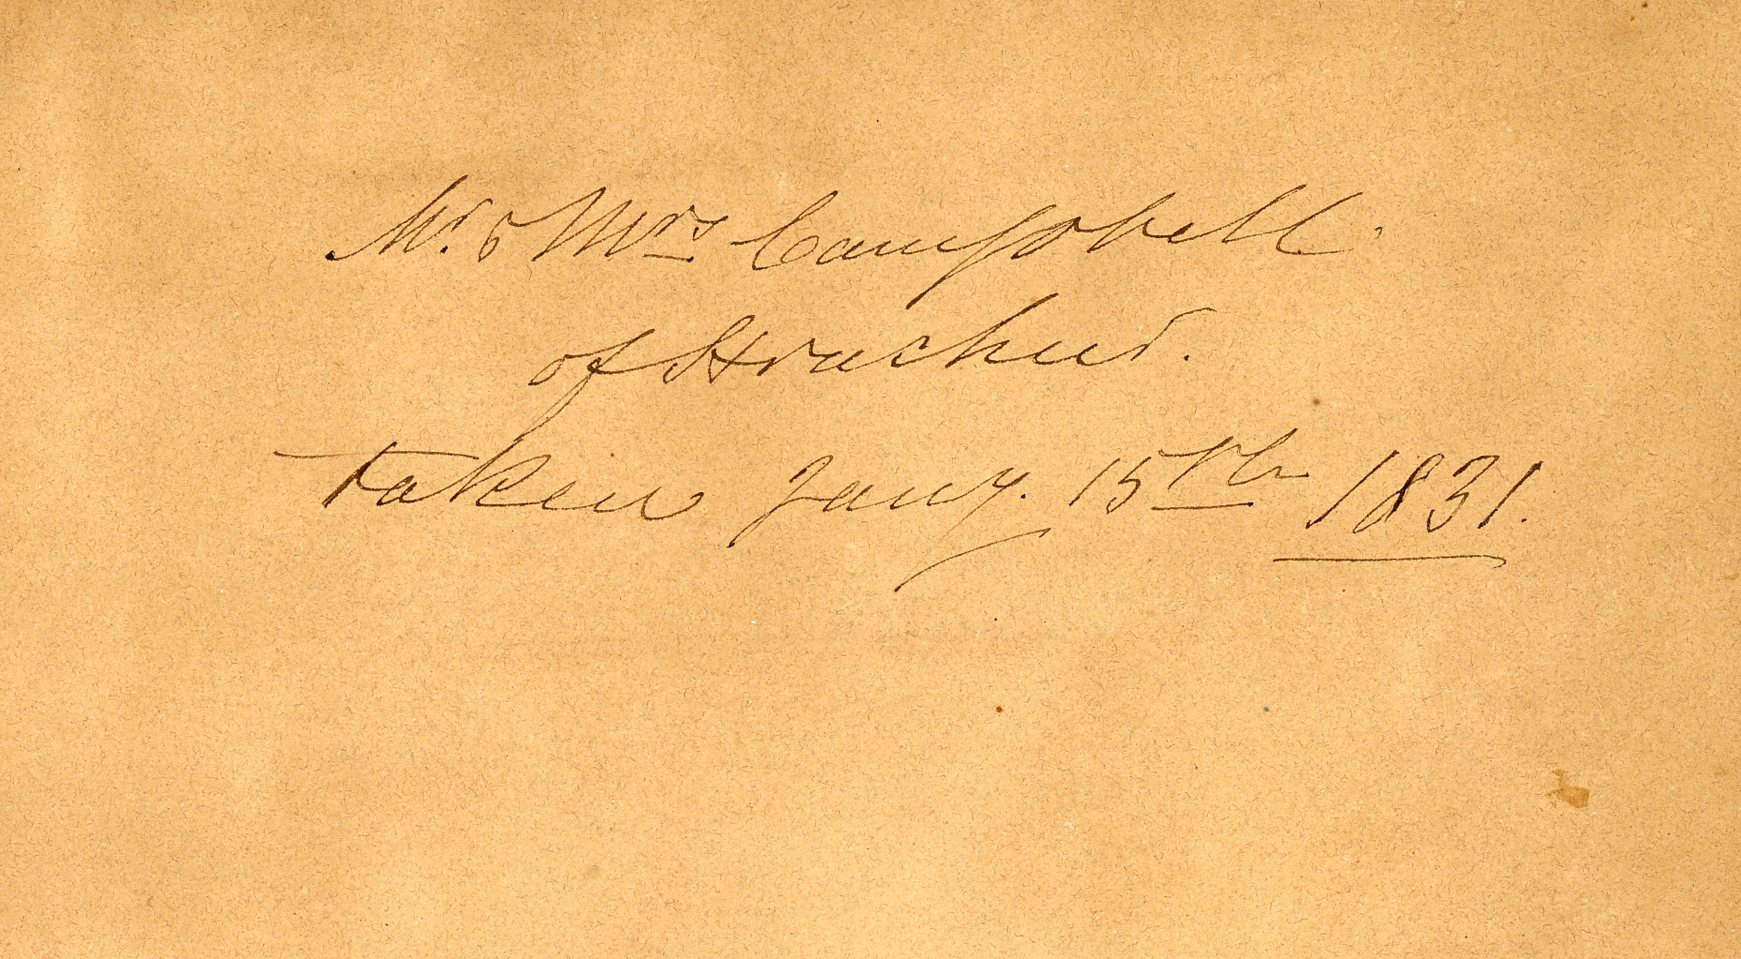 Mr. & Mrs Campbell.
of Strachur.
taken Jany. 15th 1831.